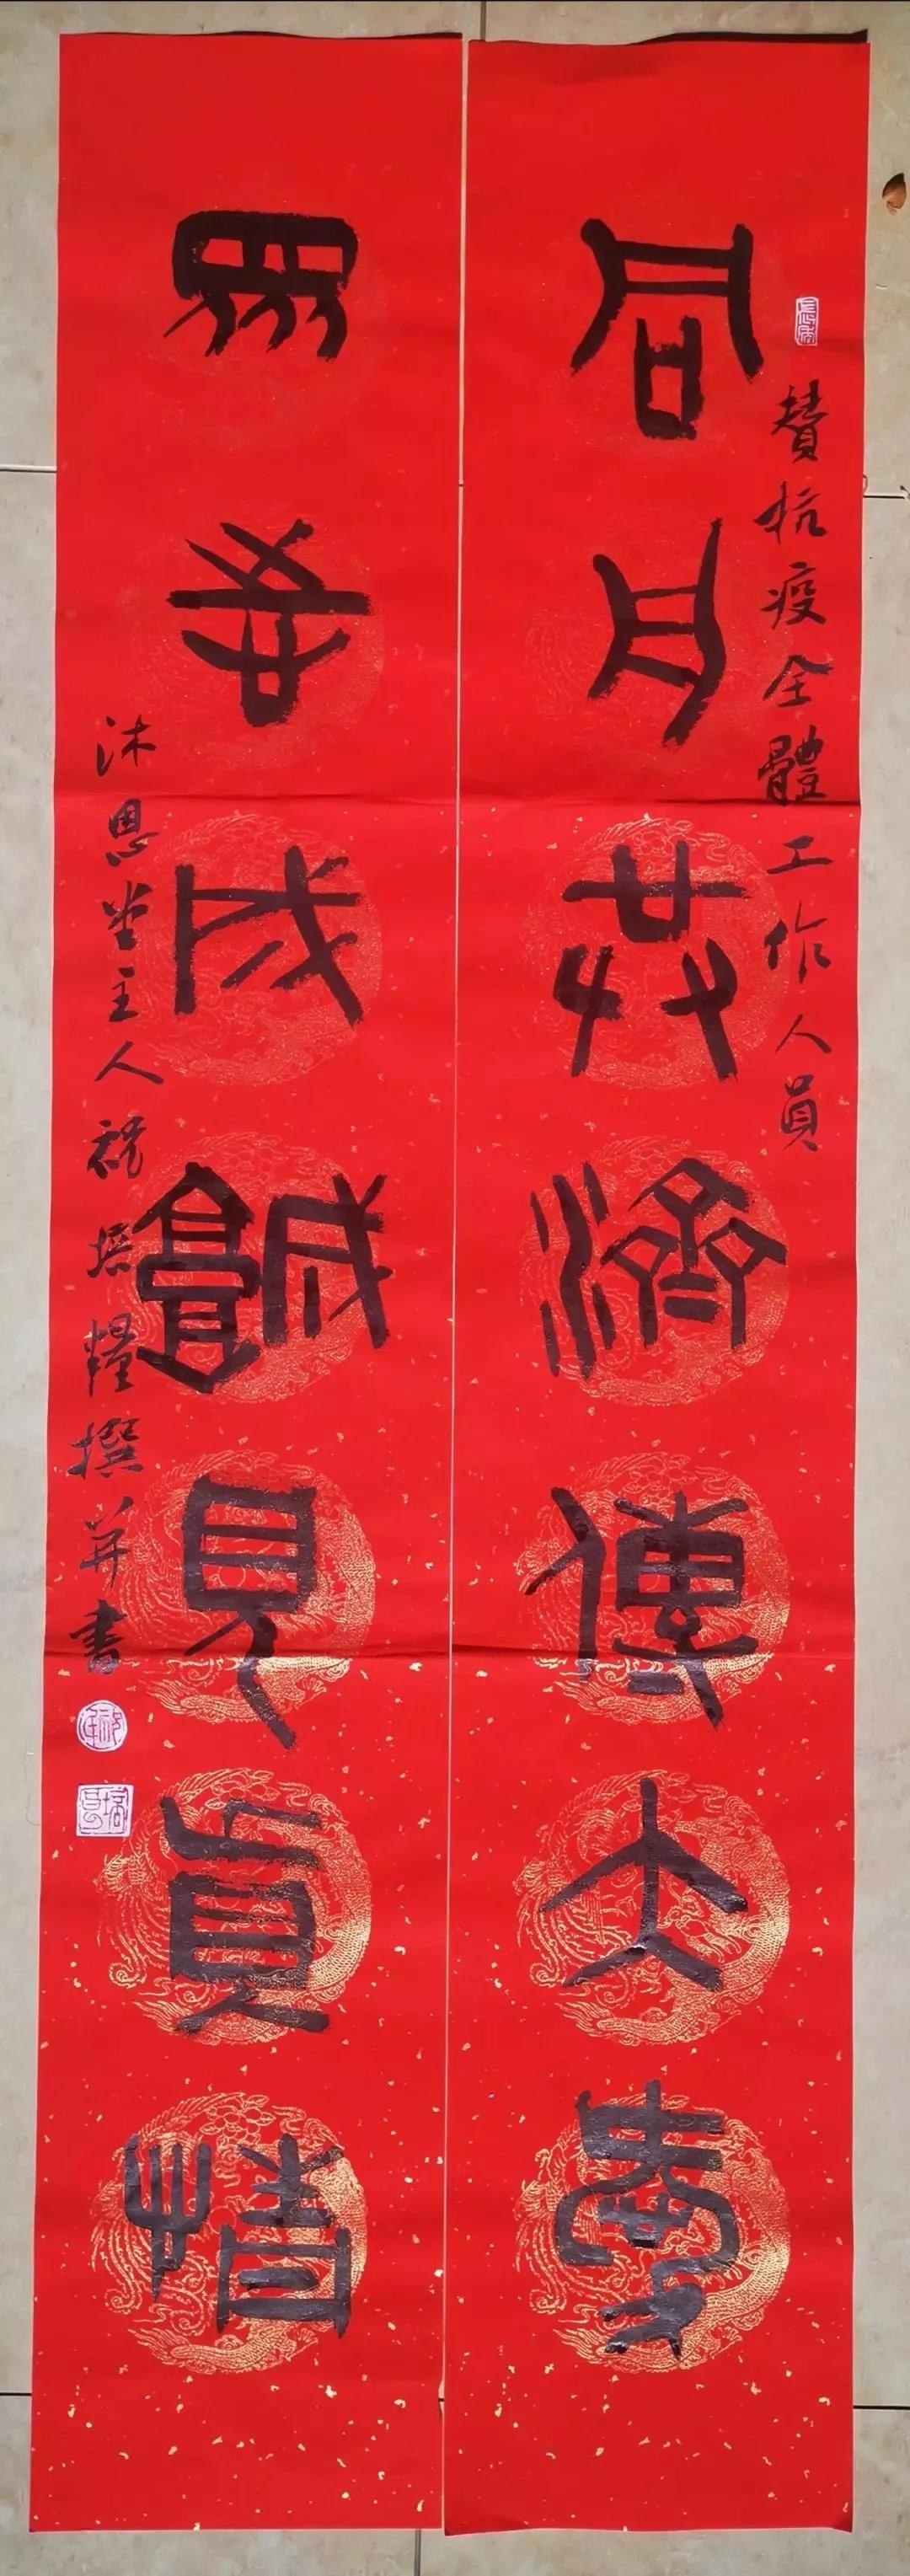 贊抗疫全體工作人員
同舟共濟傳大愛
眾志成城見真情
沐恩堂主人祝培糧撰并書